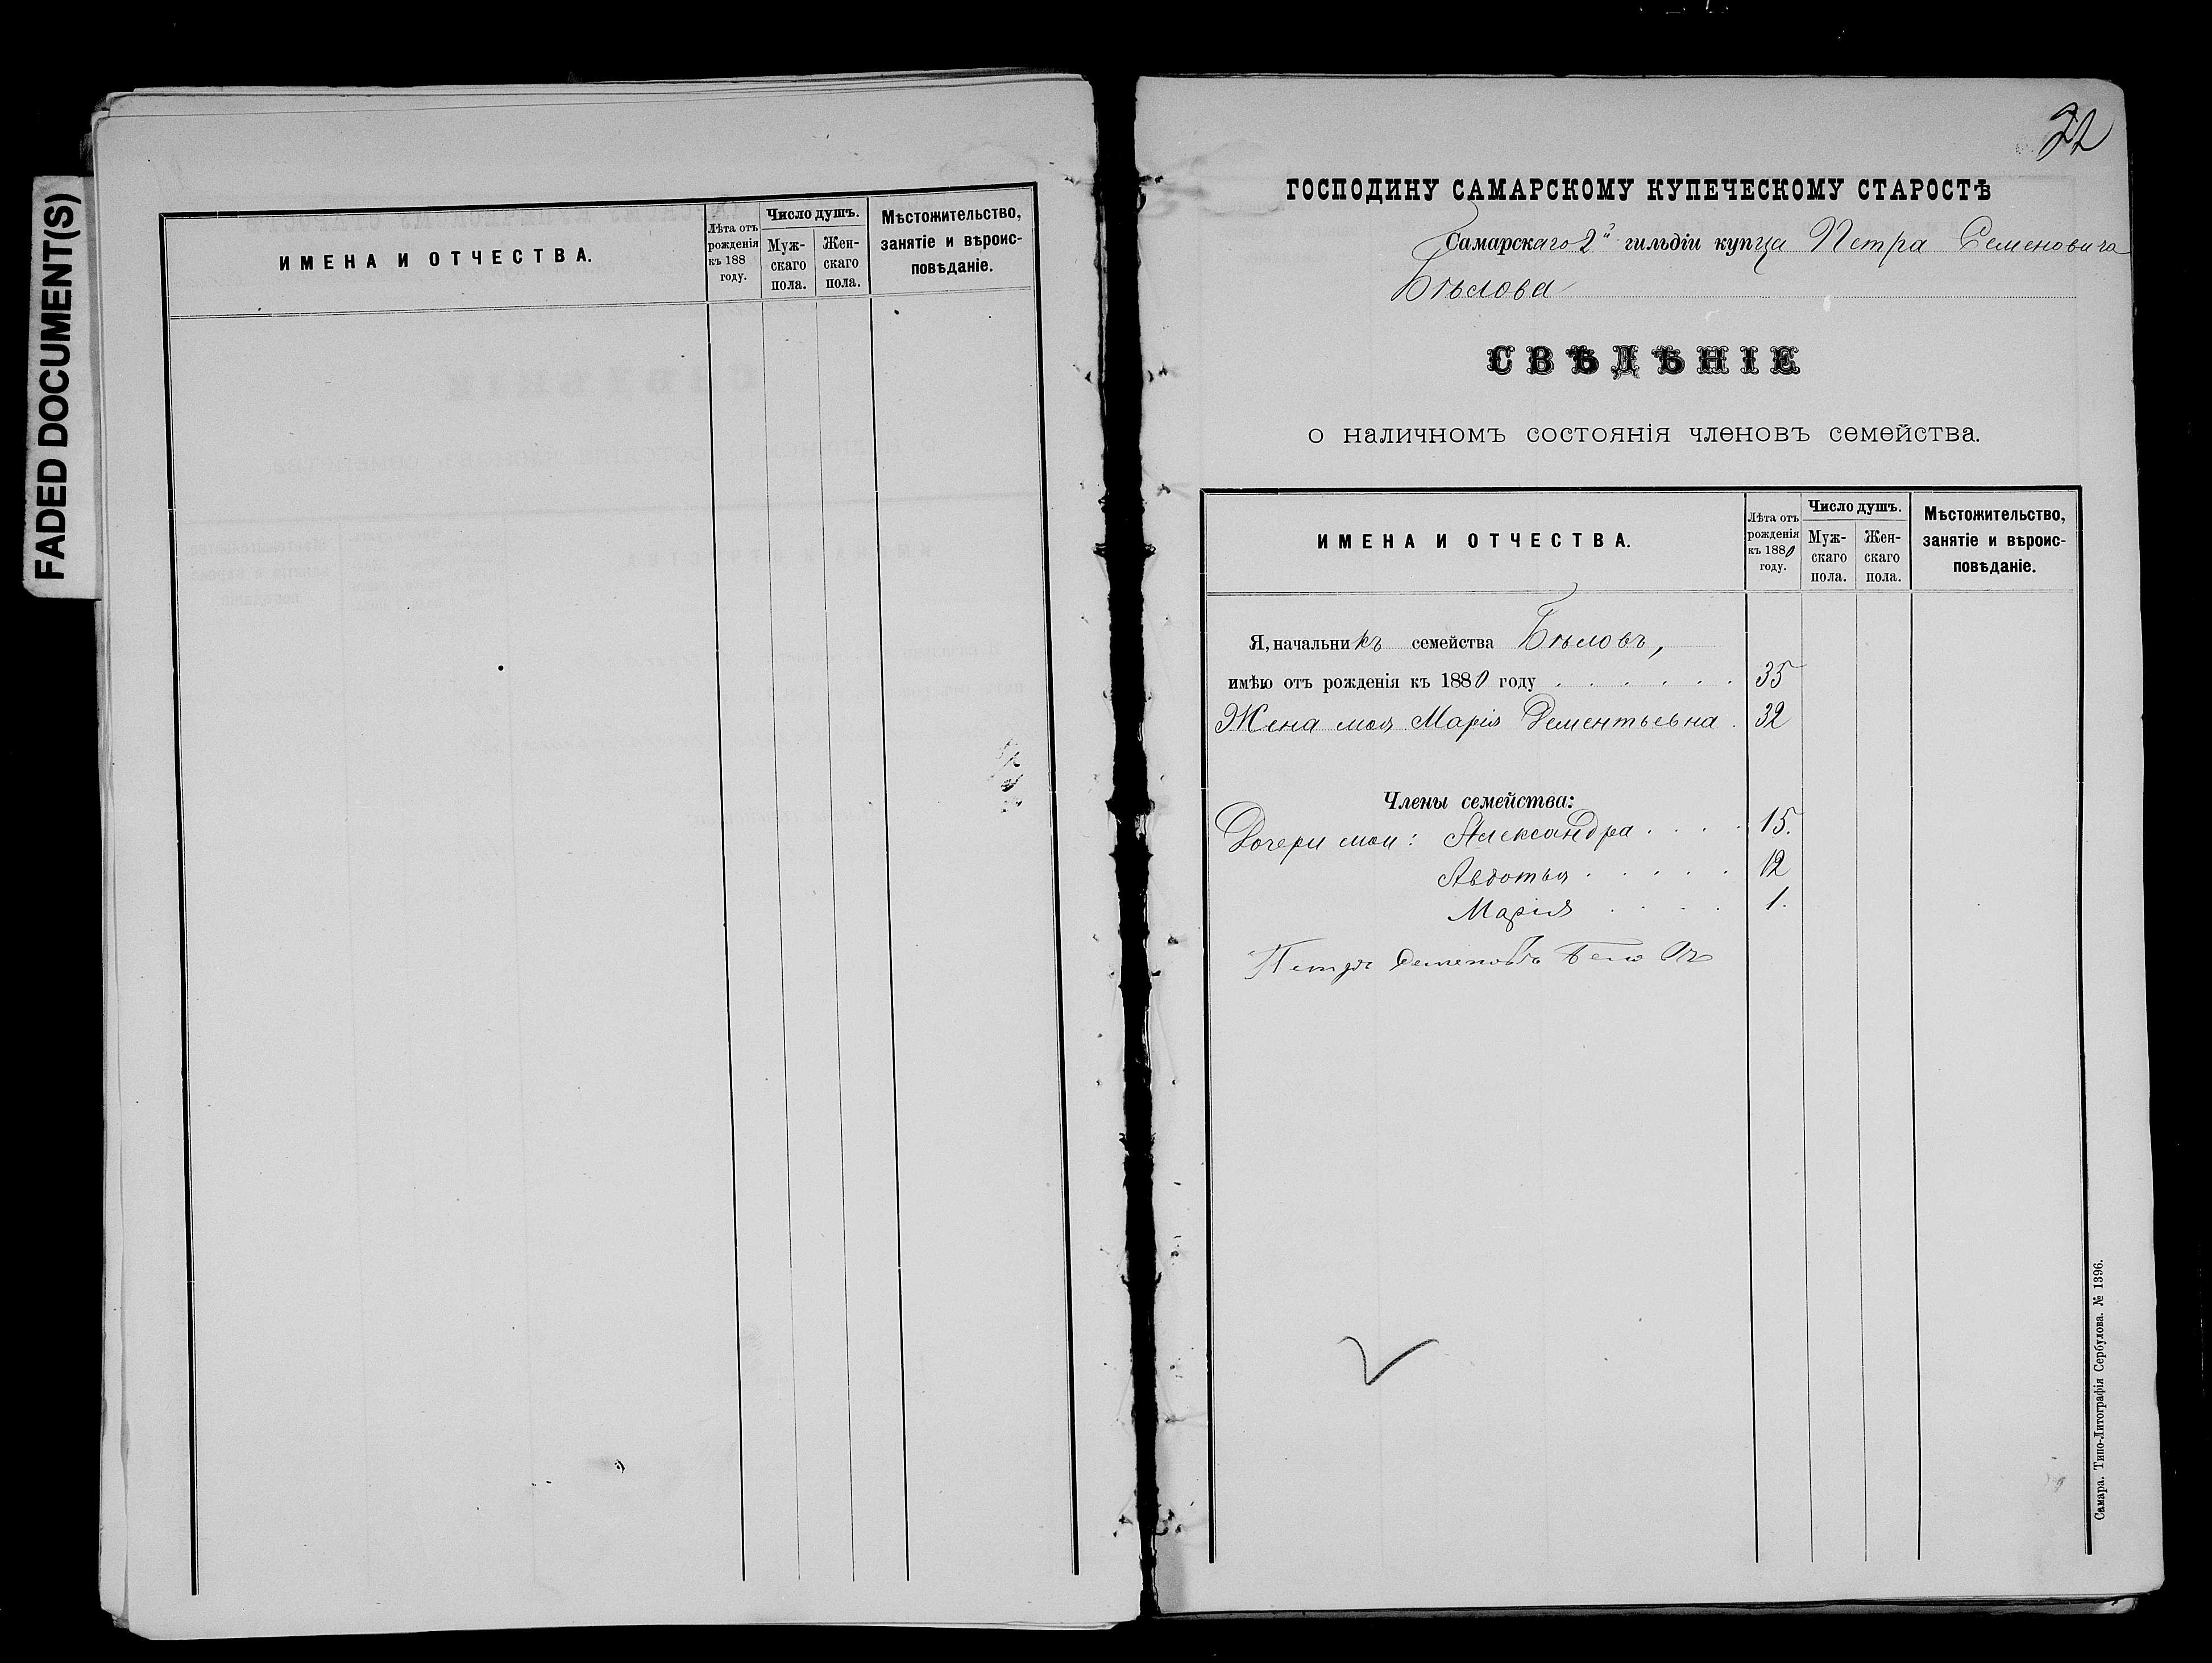 FADED DOCUMENT(S)
ИМЕНА И ОТЧЕСТВА.
Лѣта отъ рожденія къ 188 году.
Число душъ.
Мужскаго пола.
Женскаго пола.
Мѣстожительство, занятіе и вѣроисповѣданіе.
22
ГОСПОДИНУ САМАРСКОМУ КУПЕЧЕСКОМУ СТАРОСТѢ
Самарскаго 2й гильдіи купца Петра Семеновича
Бѣлова
СВѢДѢНІЕ
О НАЛИЧНОМЪ СОСТОЯНІЯ ЧЛЕНОВЪ СЕМЕЙСТВА.
ИМЕНА И ОТЧЕСТВА.
Лѣта отъ рожденія къ 1880 году.
Число душъ.
Муж-скаго пола.
Жен-скаго пола.
Мѣстожительство, занятіе и вѣроис-повѣданіе.
Я, начальникъ семейства Бѣловъ,
имѣю отъ рожденія къ 1880 году . . . . . . 35
Жена моя Марія Дементьевна . 32
Члены семейства:
Дочери мои: Александра . . . . 15.
Авдотья . . . . . 12
Марія . . . . 1.
Петръ Семеновъ Беловъ
Самара. Типо-Литографія Сербулова. № 1396.